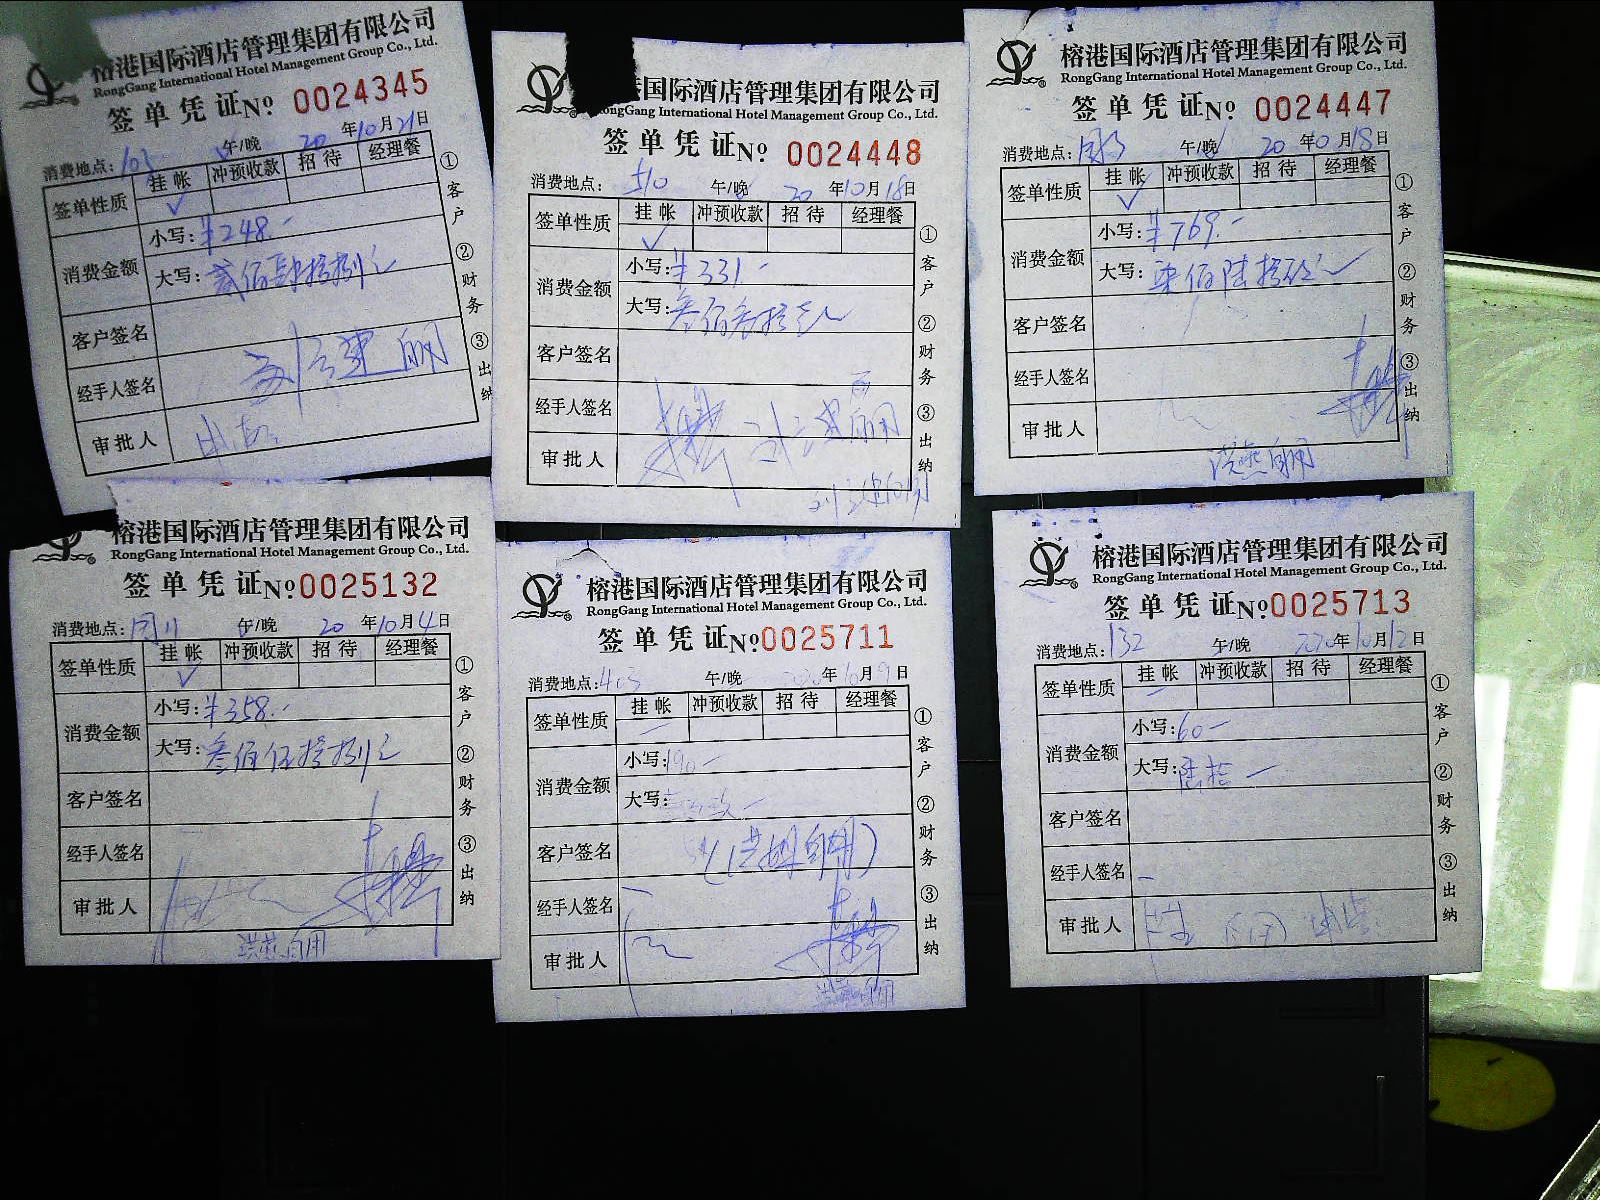 榕港国际酒店管理集团有限公司
RongGang International Hotel Management Group Co., Ltd.
签单凭证 No 0024345
消费地点: 105 午/晚 20 年 10 月 21 日
签单性质 挂帐 冲预收款 招待 经理餐
✓
消费金额 小写: ¥248.-
大写: 贰佰肆拾捌元
客户签名
经手人签名
审批人
①客户 ②财务 ③出纳
港国际酒店管理集团有限公司
RongGang International Hotel Management Group Co., Ltd.
签单凭证 No 0024448
消费地点: 510 午/晚 20 年 10 月 18 日
签单性质 挂帐 冲预收款 招待 经理餐
✓
消费金额 小写: ¥331.-
大写: 叁佰叁拾壹元
客户签名
经手人签名
审批人
①客户 ②财务 ③出纳
榕港国际酒店管理集团有限公司
RongGang International Hotel Management Group Co., Ltd.
签单凭证 No 0024447
消费地点: 午/晚 20 年 10 月 18 日
签单性质 挂帐 冲预收款 招待 经理餐
✓
消费金额 小写: ¥769.-
大写: 柒佰陆拾玖元
客户签名
经手人签名
审批人
①客户 ②财务 ③出纳
榕港国际酒店管理集团有限公司
RongGang International Hotel Management Group Co., Ltd.
签单凭证 No 0025132
消费地点: 午/晚 20 年 10 月 4 日
签单性质 挂帐 冲预收款 招待 经理餐
✓
消费金额 小写: ¥358.-
大写: 叁佰伍拾捌元
客户签名
经手人签名
审批人
①客户 ②财务 ③出纳
榕港国际酒店管理集团有限公司
RongGang International Hotel Management Group Co., Ltd.
签单凭证 No 0025711
消费地点: 403 午/晚 2020 年 10 月 9 日
签单性质 挂帐 冲预收款 招待 经理餐
消费金额 小写: 190-
大写:
客户签名
经手人签名
审批人
①客户 ②财务 ③出纳
榕港国际酒店管理集团有限公司
RongGang International Hotel Management Group Co., Ltd.
签单凭证 No 0025713
消费地点: 132 午/晚 2020 年 10 月 12 日
签单性质 挂帐 冲预收款 招待 经理餐
消费金额 小写: 60-
大写: 陆拾
客户签名
经手人签名
审批人
①客户 ②财务 ③出纳